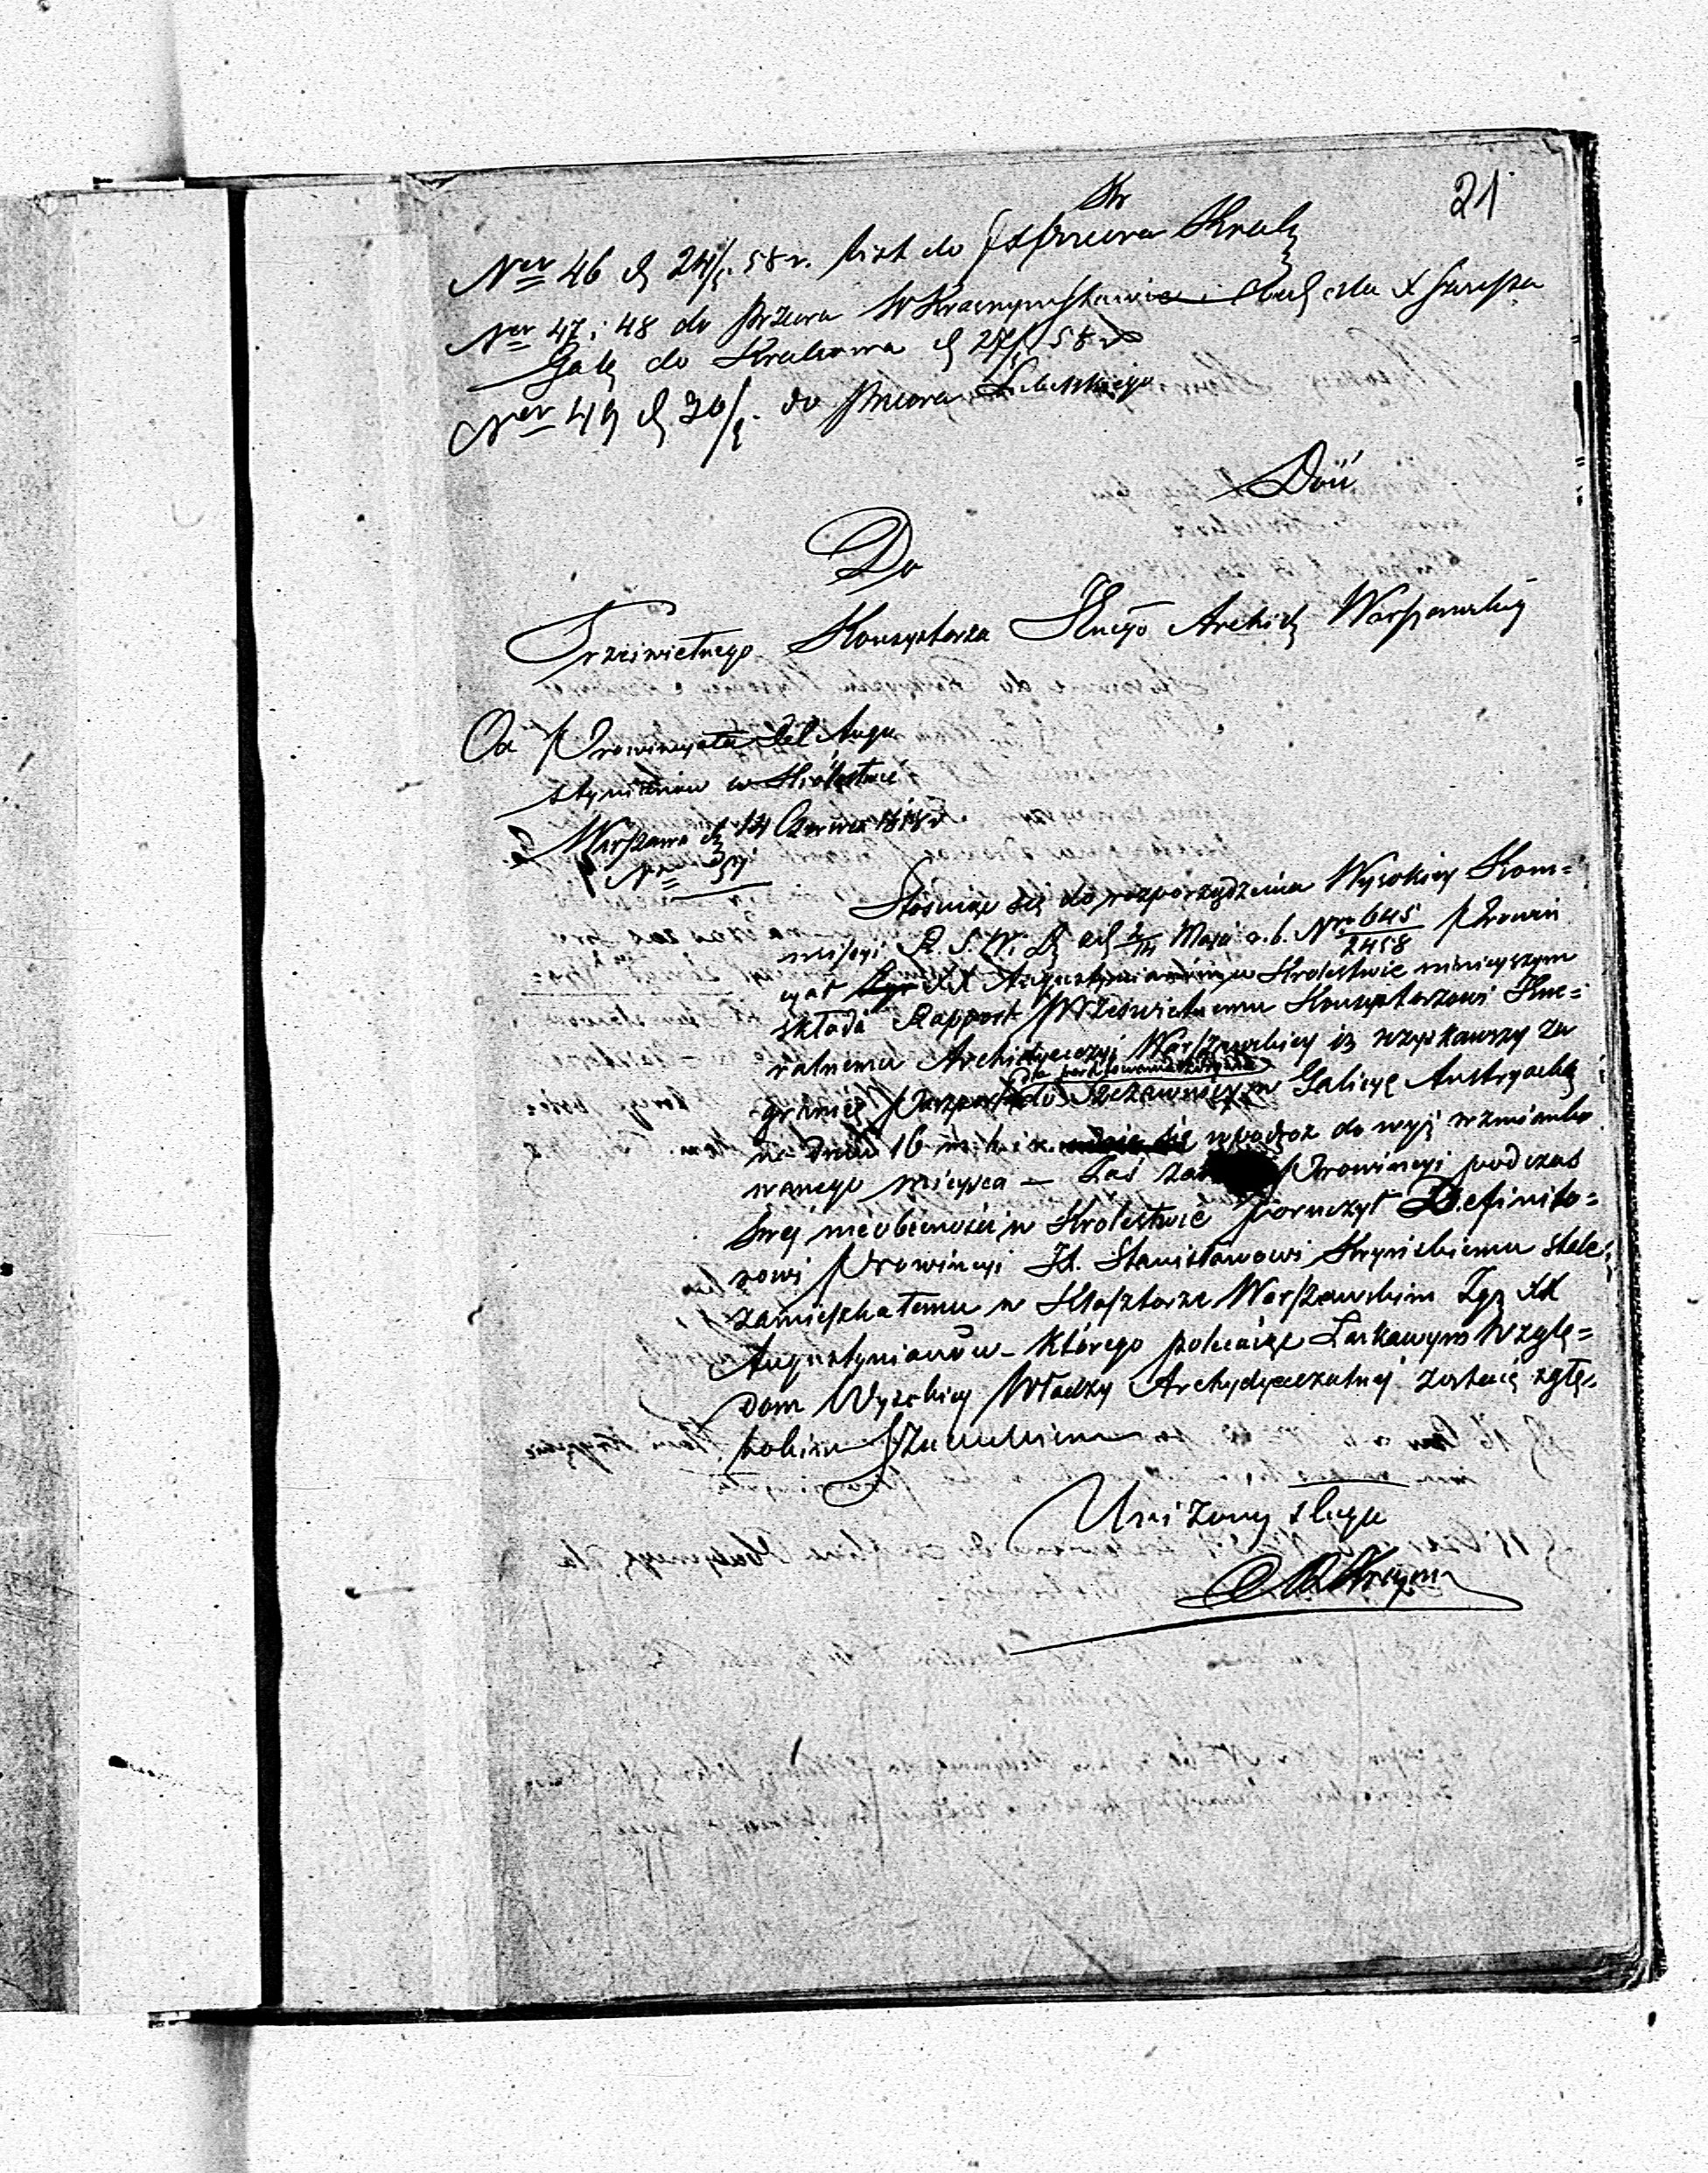 21
Kr
Ner 46 d 24/5 58 r. list do Przeora Krak
Ner 47 i 48 do Przeora W Krasnymstawie i dla X
Galę do Krakowa d 27/5 58 r
Ner 49 d 30/5 do Przeora Lubelskiego
Doń
Do
Prześwietnego Konsystorza Archid Warszawskiej
Od Prowincyała Augu
stynianów w Królestwie
Warszawa d 14 Czerwca 1858 r
Stosując się do rozporządzenia Wysokiej Kom=
missyi R. S. W. D. d 2/14 Maja r. b. Nro 645/2458 Prowin
cyał XX Augustynianów w Królestwie niniejszym
składa Rapport Prześwietnemu Konsystorzowi Jne=
ralnemu Archidyecezyi Warszawskiej iż uzyskawszy za
granicę Paszport do Szczawnicy w Galicyę Austryacką
na dniu 16 m. b. w podróż do wyż wzmianko
wanego miejsca — Zaś Prowincyi podczas
swej nieobecności w Królestwie poruczył Definito=
rowi Prowincyi X. Stanisławowi Krynickiemu stale
zamieszkałemu w Klasztorze Warszawskim Zgr XX
Augustynianów – którego polecając Łaskawym Wzglę=
dom Wysokiej Władzy Archydyecezalnej zostaję z głę=
bokim Szacunkiem
Uniżony sługa